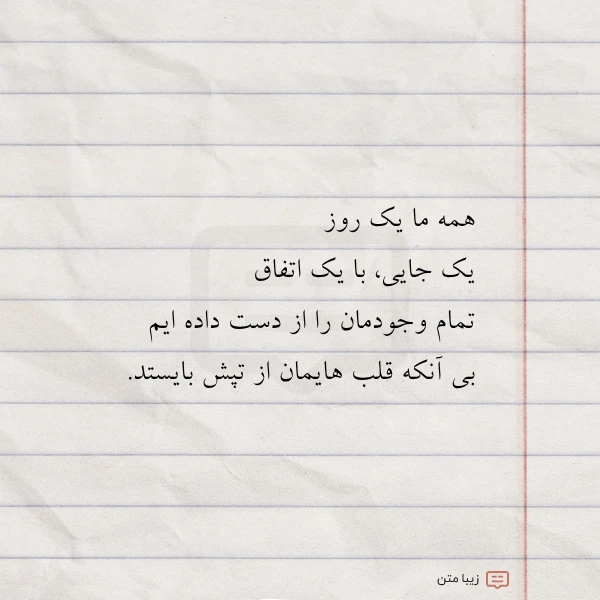 همه ما یک روز
یک جایی، با یک اتفاق
تمام وجودمان را از دست داده ایم
بی آنکه قلب هایمان از تپش بایستد.
زیبا متن